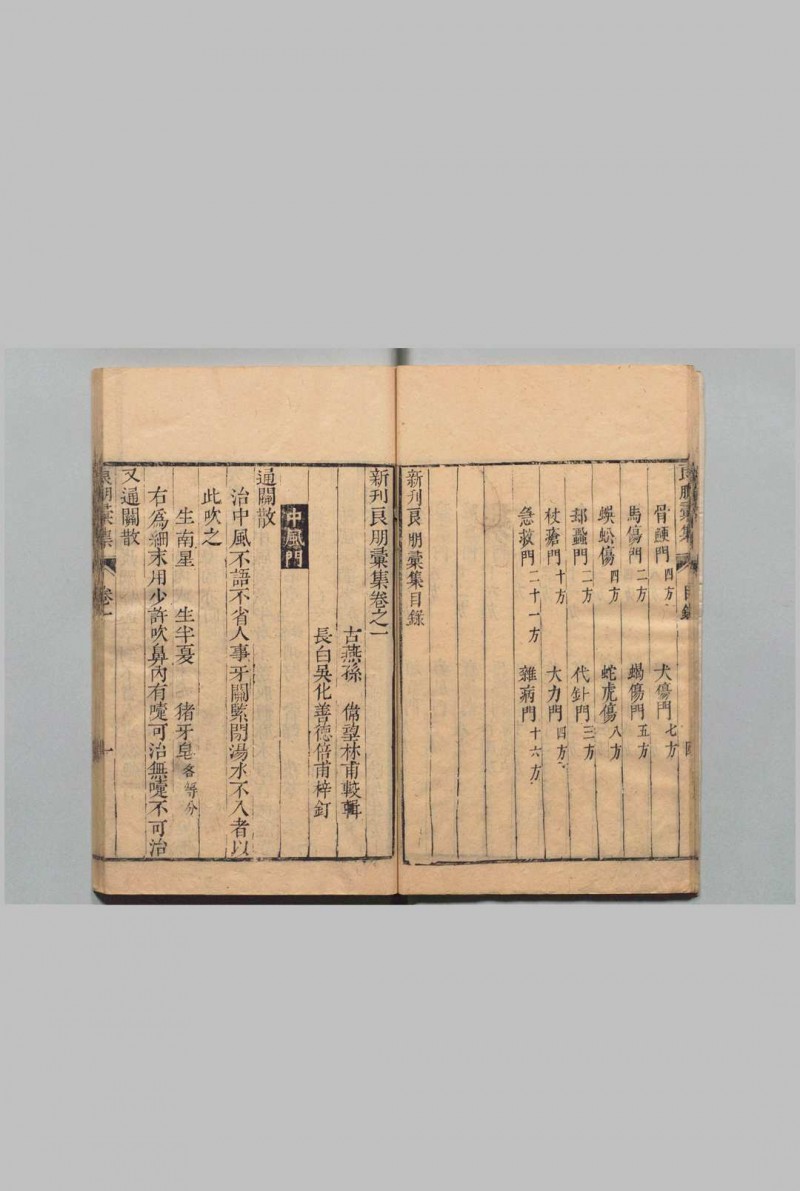 良朋彙集 目錄 四
骨硬門四方 犬傷門七方
馬傷門二方 蝎傷門五方
蜈蚣傷四方 蛇虎傷八方
蚕門二方 代針門三方
杖瘡門十方 大力門四方
急救門二十一方 雜病門十六方
新刊良朋彙集目錄
新刊良朋彙集卷之一
古燕孫 偉望林甫較輯
長白吳化善德倍甫梓釘
中風門
通關散
治中風不語不省人事牙關緊閉湯水不入者以
此吹之
生南星 生半夏 猪牙皂各等分
右爲細末用少許吹鼻內有嚏可治無嚏不可治
又通關散
良朋彙集 卷一 一